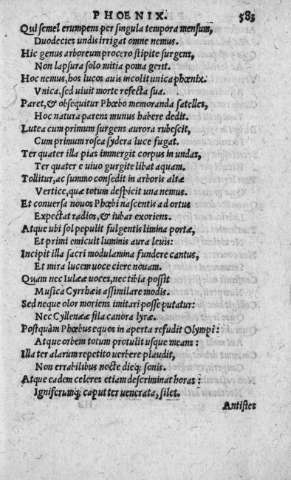 PHOENIX. 583
Qui semel erumpens per singula tempora mensum,
Duodecies undis irrigat omne nemus.
Hic genus arboreum procero stipite surgens,
Non lapsura solo mitia poma gerit.
Hoc nemus, hos lucos auis incolit unica phœnix.
Vnica, sed uiuit morte refecta sua.
Paret, & obsequitur Phœbo memoranda satelles,
Hoc natura parens munus habere dedit.
Lutea cum primum surgens aurora rubescit,
Cum primum rosea sydera luce fugat.
Ter quater illa pias immergit corpus in undas,
Ter quater e uiuo gurgite libat aquam.
Tollitur, ac summo consedit in arboris altæ
Vertice, quæ totum despicit una nemus.
Et conuersa nouos Phœbi nascentis ad ortus
Expectat radios, & iubar exoriens.
Atque ubi sol pepulit fulgentis limina portæ,
Et primi emicuit luminis aura leuis:
Incipit illa sacri modulamina fundere cantus,
Et mira lucem uoce ciere nouam.
Quam nec ædeæ uoces, nec tibia possit
Musica Cyrrhæis assimilare modis.
Sed neque olor moriens imitari posse putatur:
Nec Cylleneæ fila canora lyræ.
Postquàm Phœbus equos in aperta refudit Olympi:
Atque orbem totum protulit usque means:
Illa ter alarum repetito uerbere plaudit,
Non errabilibus nocte dieq; sonis.
Atque eadem celeres etiam descriminat horas:
Igniferumq; caput ter uenerata, silet.
Antistes